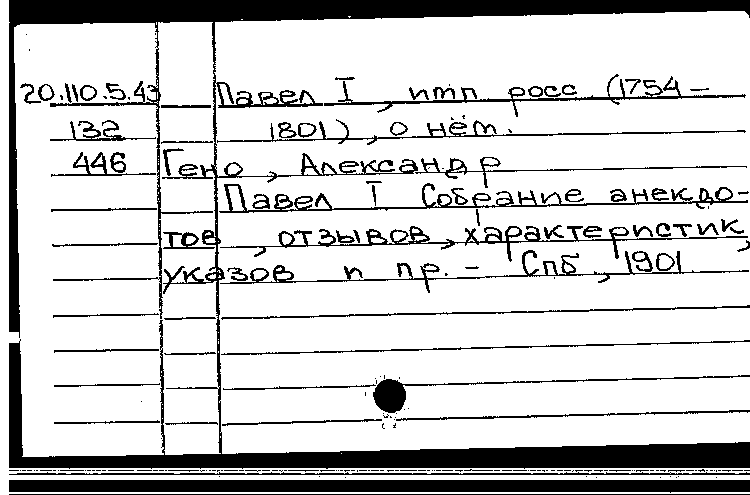 20.110.5.43 Павел I, имп росс (1754 –
132 1801), о нём.
446 Гено, Александр
Павел I Собрание анекдо-
тов, отзывов, характеристик,
указов и пр. – Спб, 1901